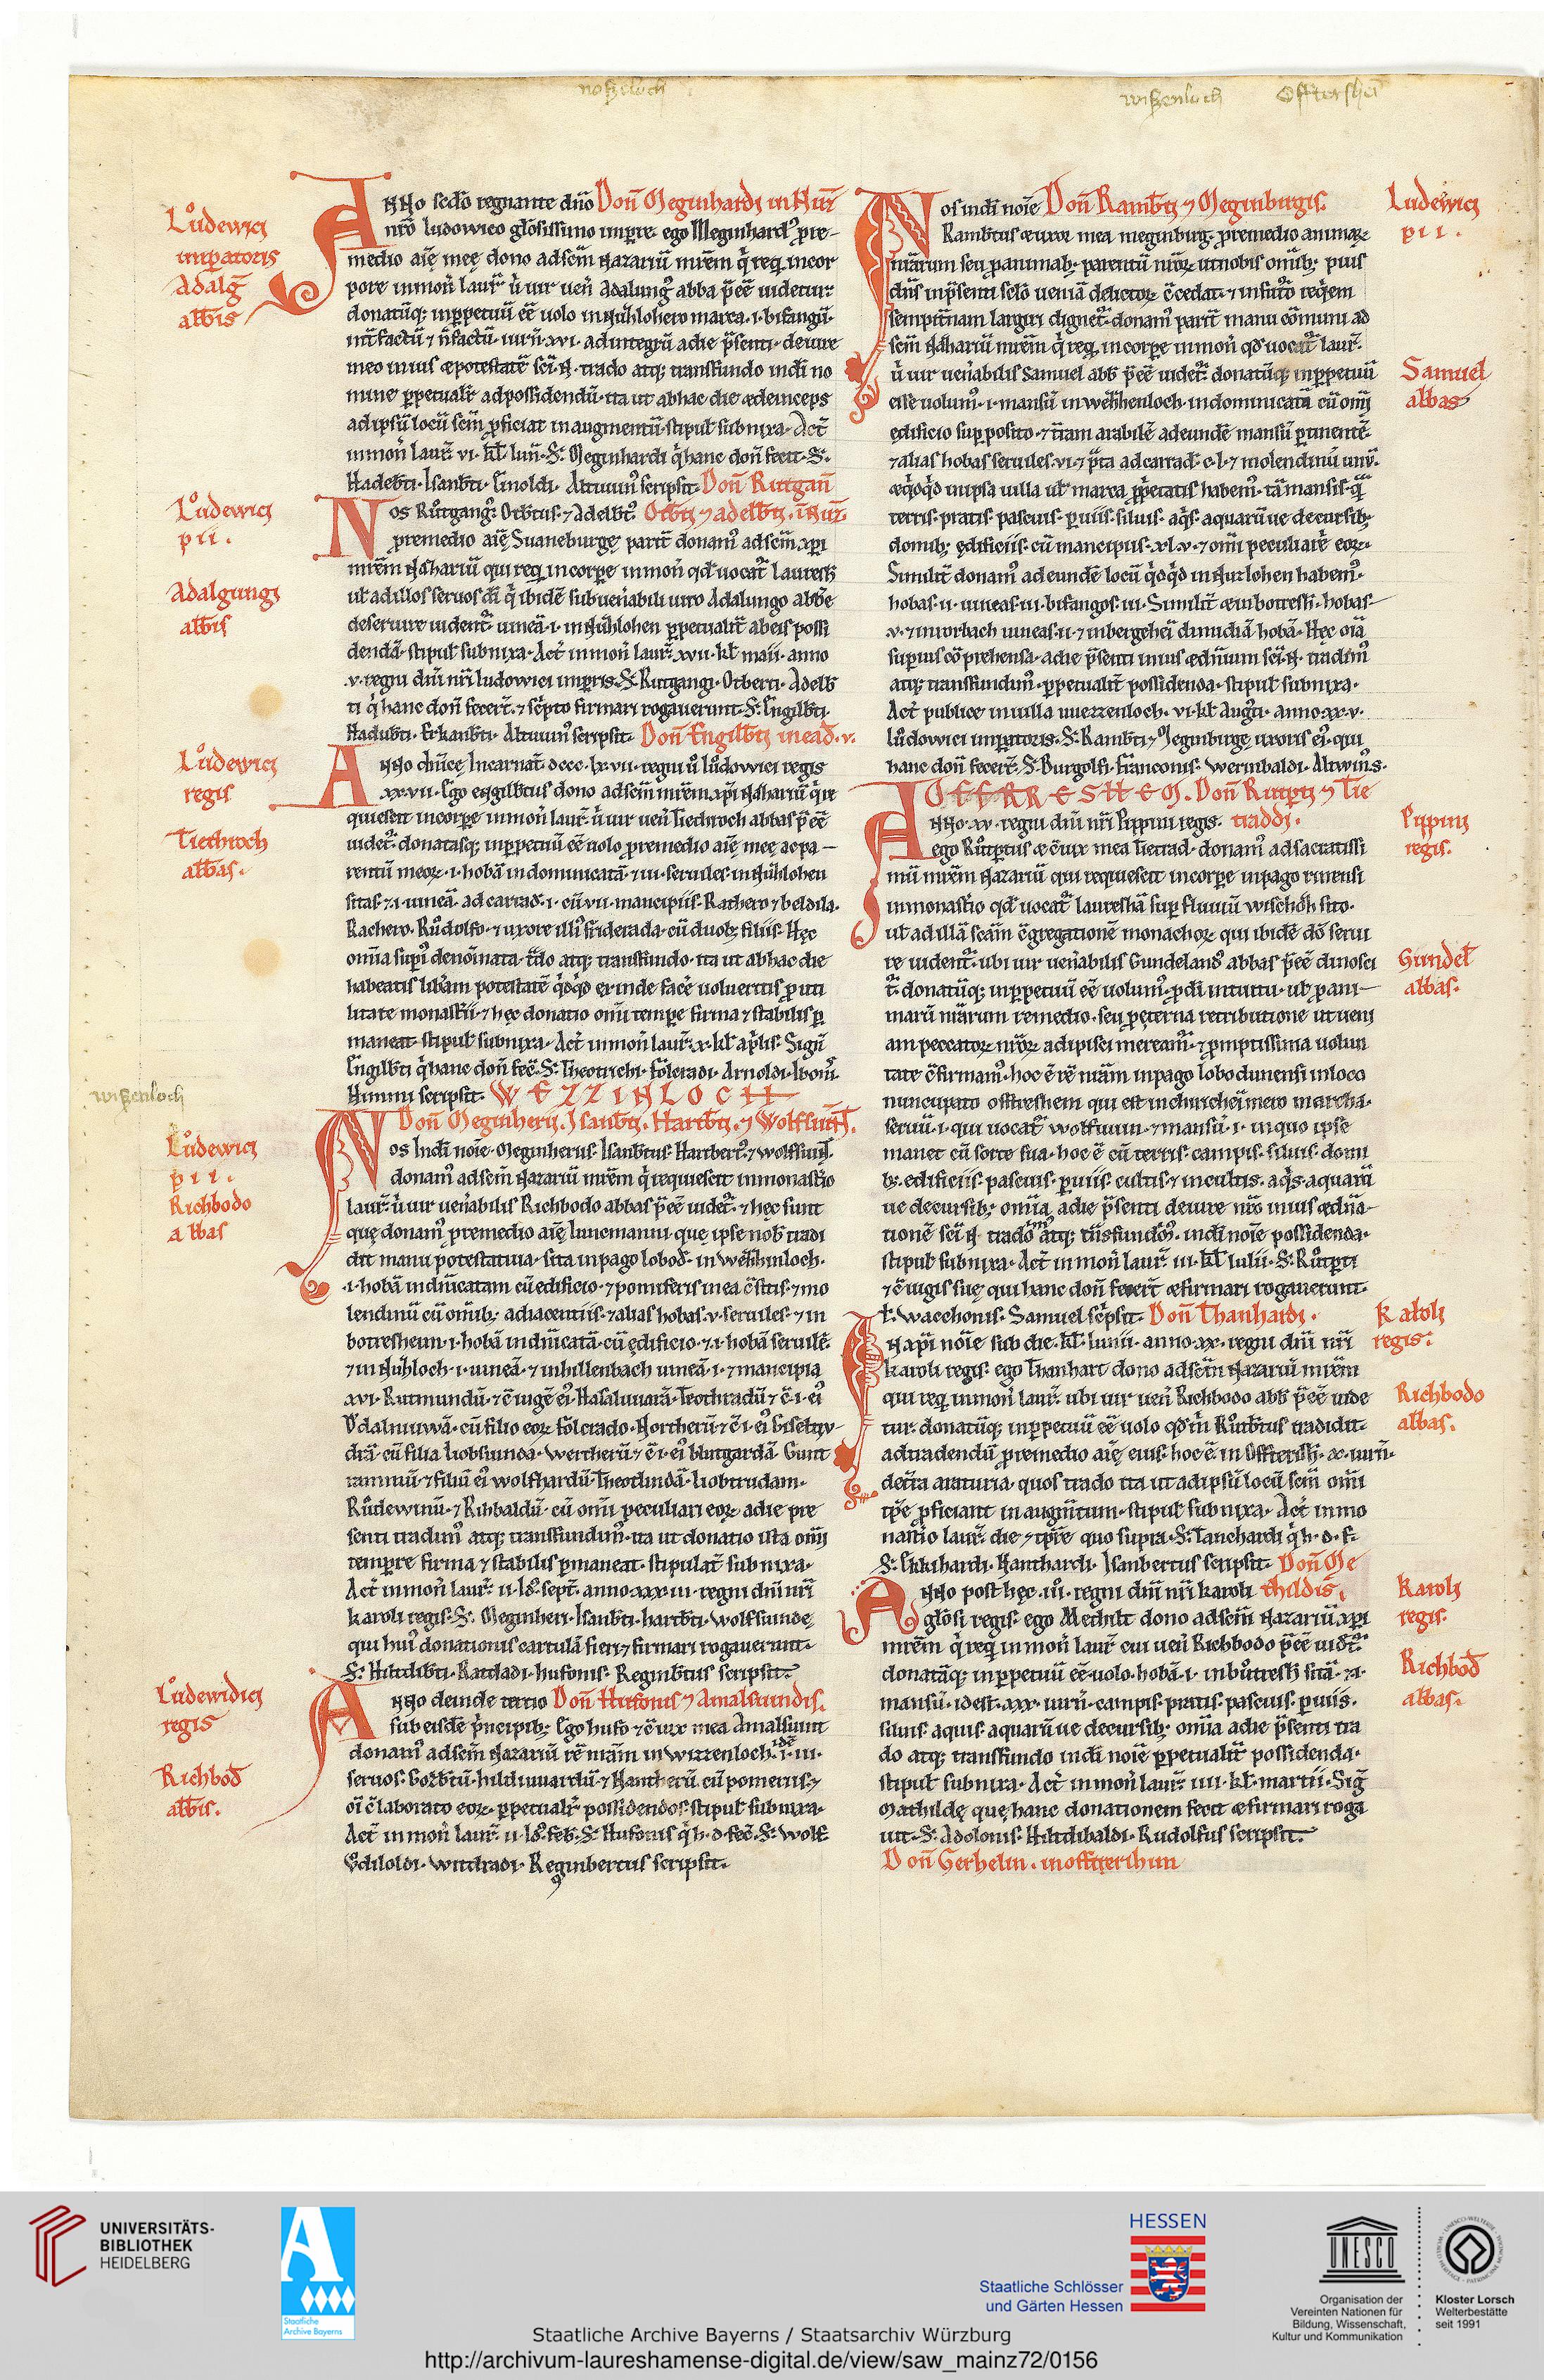 nossloch
wissenloch
Offtershei
Lůdewici
imp̄atoris
Adalḡ
abb̄is
ANNo scd̄o regnante dn̄o Don̄ Meginhardi in Nuz̄
nr̄o ludowico glo̅sissimo imp̄re. ego Meginhard᷒ ꝓ re-
medio aīę meę dono ad sc̄m Nazariū mr̄em q̇ req. in cor
pore in mon̄ laur̄. u̇ uir uen̄ Adalung᷒ abba p̄ ēē uidetur.
donatūq; in ꝑpetuū ēē uolo in Nuhlohero marca .i. bifangū.
int̄ factū ⁊ n̄ factū. iurn̄. xvi. ad integrū a die p̄senti. de iure
meo in ius ⁊ potestatē sc̄i .N. trado atq; transfundo in dī no
mine ꝑpetualit̄ ad possidendū. ita ut ab hac die ⁊ deinceps
ad ipsū locū sc̄m ꝓficiat in augmentū. stipul̄ subnixa. Act̄
in mon̄ laur̄. vi. kl̄ iun̄. S. Meginhardi q̇ hanc don̄ fecit. S.
Hadeb̄ti. Isanb̄ti. Einoldi. Altuuin᷒ scripsit. Don̄ Rutgan̄
Lůdewici
pii.
Adalgungi
abb̄is
Nos Růtgang᷒. Otb̄tus. ⁊ Adelbt᷒. Otb̄ti ⁊ adelb̄ti. ī Nuz̄.
ꝓ remedio aīę Suaneburgę parit̄ donam᷒ ad sc̄m xp̄i
mr̄em Nazariū qui req. in corpe in mon̄ qd̄ uocat᷒ lauresh̄
ul̄ ad illos seruos dī q̇ ibidē sub uen̄abili uiro Adalungo abb̄e
deseruire uident᷒. uineā .i. in Nuhlohen ꝑpetualit̄ ab eis possi
dendā. stipul̄ subnixa. Act̄ in mon̄ laur̄. xvii. kl̄ maii. anno
.v. regni dn̄i nr̄i ludowici imp̄ris. S. Rutgangi. Otberti. Adelb̄
ti q̇ hanc don̄ fecer̄t. ⁊ sc̄pto firmari rogauerunt. S. Engilb̄ti.
Hadub̄ti. Erkanb̄ti. Altuuin᷒ scripsit. Don̄ Engilb̄ti in ead̄. v.
Lůdewici
regis
Tiethroch
abbas.
ANNo dn̄icę Incarnat̄. dccc. lx. vii. regni ů lůdowici regis
xx. vii. Ego engilb̄tus dono ad sc̄m mr̄em xp̄i Nazariū q̇ re
quiescit in corpe in mon̄ laur̄. u̇ uir uen̄ Tiethroch abbas p̄ ēē
uidet᷒. donatasq; in ꝑpetuū ēē uolo ꝓ remedio aīę meę ac pa-
rentū meoꝝ .i. hobā in dominicatā. ⁊ iii. seruiles in Nuhlohen
sitas. ⁊ .i. uineā. ad carrad̄ .i. cū vii. mancipiis. Rathero ⁊ beldila.
Rachero. Růdolfo. ⁊ uxore illi᷒ friderada. cū duob; filiis. Hęc
omīa supi᷒ denōinata. t̄do atq; transfundo. ita ut ab hac die
habeatis lib̄am potestatē q̇dqd̄ ex inde facē uolueritis ꝓ uti
litate monast̄ii. ⁊ hęc donatio om̄i tempe firma ⁊ stabilis ꝑ
maneat stipul̄ subnixa. Act̄ in mon̄ laur̄. x. kl̄ ap̄lis. Sigū
Engilb̄ti q̇ hanc don̄ fec̄. S. Theotrichi. folcradi. Arnoldi. Iboni᷒.
Himmi scripsit. WEZZINLOCH
wissenloch
Lůdewici
pii.
Richbodo
abbas
Don̄ Meginheri. Isanb̄ti. Hartb̄ti. ⁊ Wolfsuin̄d.
Nos In dī noīe. Meginherus. Isanb̄tus. Hartbert᷒. ⁊ wolfsuind̄.
donam᷒ ad sc̄m Nazariū mr̄em q̇ requiescit in monast̄io
laur̄. u̇ uir uen̄abilis Richbodo abbas p̄ ēē uidet᷒. ⁊ hęc sunt
quę donam᷒ ꝓ remedio aīę lunemanni. quę ipse nob̄ tradi
dit manu potestatiua. sita in pago lobod̄. in wezzinloch.
.i. hobā indn̄icatam cū edificio. ⁊ pomiferis in ea c̄stitis. ⁊ mo
lendinū cū om̄ib; adiacentiis. ⁊ alias hobas .v. seruiles. ⁊ in
botresheim .i. hobā indn̄icatā. cū ędificio. ⁊ .i. hobā seruilē.
⁊ in Nuhloch .i. uineā. ⁊ in hillenbach uineā .i. ⁊ mancipia
xvi. Rutmundū. ⁊ c̄iugē ei᷒ Hasaluuarā. Teothradū ⁊ c̄.i. ei᷒
Vdalniuuā. cū filio eoꝝ folcrado. Northerū ⁊ c̄.i. ei᷒ Giseltru
drā. cū filia liobsuinda. wertherū ⁊ c̄.i. ei᷒ blutgardā. Gunt
rammū. ⁊ filiū ei᷒ wolfhardū. Theotlindā. liobtrudam.
Růdewinū. ⁊ Rihbaldū. cū om̄i peculiari eoꝝ a die pre
senti tradim᷒ atq; transfundim᷒. ita ut donatio ista om̄i
tempre firma ⁊ stabilis ꝑmaneat. stipulat̄ subnixa.
Act̄ in mon̄ laur̄. ii. Id᷒. sept̄. anno. xxx. iii. regni dn̄i nr̄i
karoli regis. S. Meginheri. Isanb̄ti. hartb̄ti. wolfsuindę
qui hui᷒ donationis cartulā fieri ⁊ firmari rogauerunt.
S. Hiltdib̄ti. Rattdadi. husonis. Reginb̄tus scripsit.
Lůdewidici
regis
Richbod̄
abb̄is.
ANNo deinde tertio Don̄ Husonis ⁊ Amalsuindis.
sub eisdē p̄ncipib; Ego huso ⁊ c̄iux mea Amalsuint
donam᷒ ad sc̄m Nazariū rē nr̄am in wizzenloch. idē .iii.
seruos. Gozb̄tū. hildiuuardū. ⁊ Hantherū. cū pomeriis. ⁊
oī c̄laborato eoꝝ. ꝑpetualit̄ possidendos. stipul̄ subnixa.
Act̄ in mon̄ laur̄. ii. Id᷒. feb̄. S. Husonis q̇ h. d. fec̄. S. wolf
Ůdiloldi. wittradi. Reginbertus scripsit.
Ludewici
pii.
Nos in dī noīe Don̄ Ramb̄ti ⁊ Meginburgis.
Ramb̄tus ⁊ uxor mea meginburg. ꝓ remedio animaꝝ
nr̄arum seu ꝓ animab; parentū nr̄oꝝ ut nobis om̄ib; pius
dn̄s in p̄senti sc̄lo ueniā delictoꝝ c̄cedat. ⁊ in futo᷒ reqēm
sempit̄nam largiri dignet᷒. donam᷒ parit̄ manu cōmuni ad
sc̄m Nazariū mr̄em q̇ req. in corpe in mon̄ qd̄ uocat᷒ laur̄.
u̇ uir uen̄abilis Samuel abb̄ p̄ ēē uidet᷒. donatūq; in ꝑpetuū
esse uolum᷒ .i. mansū in wezzenloch. indominicatā cū om̄i
ędificio sup posito. ⁊ t̄ram arabilē ad eundē mansū ꝑtinentē.
⁊ alias hobas seruiles .vi. ⁊ p̄ta ad carrad̄. c. l. ⁊ molendinū unū.
⁊ q̇dq̇d in ipsa uilla ul̄ marca ꝓprietatis habem᷒. tā mansis. q̄m
terris. pratis. pascuis. ꝑuiis. siluis. aq̇s. aquarūue decursib;
domib; ędificiis. cū mancipiis. xl. v. ⁊ om̄i peculiarē eoꝝ.
Similit̄ donam᷒ ad eundē locū q̇dq̇d in Nuzlohen habem᷒.
hobas .ii. uineas .iii. bifangos .iii. Similit̄ ⁊ in botresh̄. hobas
.v. ⁊ in norbach uineas .ii. ⁊ in bergeheī dimidiā hobā. Hęc oīa
superius cōprehensa. a die p̄senti in ius ⁊ dn̄ium sc̄i .N. tradim᷒
atq; transfundim᷒. ꝑpetualit̄ possidenda. stipul̄ subnixa.
Act̄ publice in uilla uuezzenloch. vi. kl̄ aug̃ti. anno. xx. v.
lůdowici imp̄atoris. S. Ramb̄ti ⁊ Meginburgę uxoris ei᷒. qui
hanc don̄ fecer̄t. S. Burgolfi. franconis. Werinbaldi. Altwinis.
Samuel
abbas
OFFRESHEM. Don̄ Rutp̄ti ⁊ Tie
traddi.
Pipini
regis.
ANNo. xv. regni dn̄i nr̄i Pippini regis.
ego Růtp̄tus ⁊ c̄iux mea Tietrad. donam᷒ ad sacratissi
mū mr̄em Nazariū qui requiescit in corpe in pago rinensi
in monast̄io qd̄ uocat᷒ lauresha̅ sup fluuiū wischoz̄ sito.
ul̄ ad illā sc̄am c̄gregationē monachoꝝ qui ibidē dō serui
re uident᷒. ubi uir uen̄abilis Gundeland᷒ abbas p̄ ēē dinosci
t᷒. donatūq; in ꝑpetuū ēē uolum᷒. ꝓ dī intuitu. ul̄ ꝓ ani-
marū nr̄arum remedio. seu ꝓ ęterna retributione ut ueni
am peccatoꝝ nr̄oꝝ adipisci meream᷒. ⁊ ꝓmptissima uolun
tate c̄firmam᷒. hoc ē rē nr̄am in pago lobodunensi in loco
nuncupato offtreshem qui est in churcheimero marcha.
seruū .i. qui uocat᷒ wolfuuin. ⁊ mansū .i. in quo ipse
manet cū sorte sua. hoc ē cū terris. campis. siluis. domi
b; edificiis. pascuis. ꝑuiis. cultis. ⁊ incultis. aq̇s. aquarū
ue decursib; omīa a die p̄senti de iure nr̄o in ius ⁊ dn̄a-
tionē sc̄i N. tradim᷒ atq; trāsfundim᷒. in dī noīe possidenda.
stipul̄ subnixa. Act̄ in mon̄ laur̄. iii. kl̄ Iulii. S. Růtp̄ti
⁊ c̄iugis suę qui hanc don̄ fecer̄t ⁊ firmari rogauerunt.
S. wacchonis. Samuel sc̄psit. Don̄ Thanhardi.
Gundel̄
abbas.
Karoli
regis.
Richbodo
abbas.
IN xp̄i noīe sub die. kl̄. Iunii. anno. xx. regni dn̄i nr̄i
karoli regis. ego Thanhart dono ad sc̄m Nazariū mr̄em
qui req. in mon̄ laur̄. ubi uir uen̄ Richbodo abb̄ p̄ ēē uide
tur. donatūq; in ꝑpetuū ēē uolo qd̄ m̄ Růtb̄tus tradidit
ad tradendū ꝓ remedio aīę eius. hoc ē in Offtersh̄. x. iurn̄.
de t̄ra araturia. quos trado ita ut ad ipsū locū sc̄m om̄i
tp̄e ꝓficiant in augm̄tum. stipul̄ subnixa. Act̄ in mo
nast̄io laur̄. die ⁊ tp̄re quo supra. S. Tanchardi q̇ h. d. f.
S. Ekkihardi. Hanthardi. Isanbertus scripsit. Don̄ Me
thildis.
Karoli
regis.
Richbod̄
abbas.
ANNo post hęc .iii᷒. regni dn̄i nr̄i karoli
glo̅si regis. ego Mechilt dono ad sc̄m Nazariū xp̄i
mr̄em q̇ req. in mon̄ laur̄ cui uen̄ Richbodo p̄ ēē uid̄t᷒.
donatāq; in ꝑpetuū ēē uolo. hobā .i. in bůtresh̄ sitā. ⁊ .i.
mansū. id est. xxx. iurn̄. campis. pratis. pascuis. ꝑuiis.
siluis aquis aquarūue decursib; omīa a die p̄senti tra
do atq; transfundo in dī noīe ꝑpetualit̄ possidenda.
stipul̄ subnixa. Act̄ in mon̄ laur̄. iiii. kl̄. martii. Sig̅
Mathildę quę hanc donationem fecit ⁊ firmari roga
uit. S. Adolonis. Hiltdibaldi. Rudolfus scripsit.
Don̄ Gerhelm. in offtersheim
UNIVERSITÄTS-
BIBLIOTHEK
HEIDELBERG
Staatliche
Archive Bayerns
HESSEN
Staatliche Schlösser
und Gärten Hessen
UNESCO
Organisation der
Vereinten Nationen für
Bildung, Wissenschaft,
Kultur und Kommunikation
Kloster Lorsch
Welterbestätte
seit 1991
Staatliche Archive Bayerns / Staatsarchiv Würzburg
http://archivum-laureshamense-digital.de/view/saw_mainz72/0156